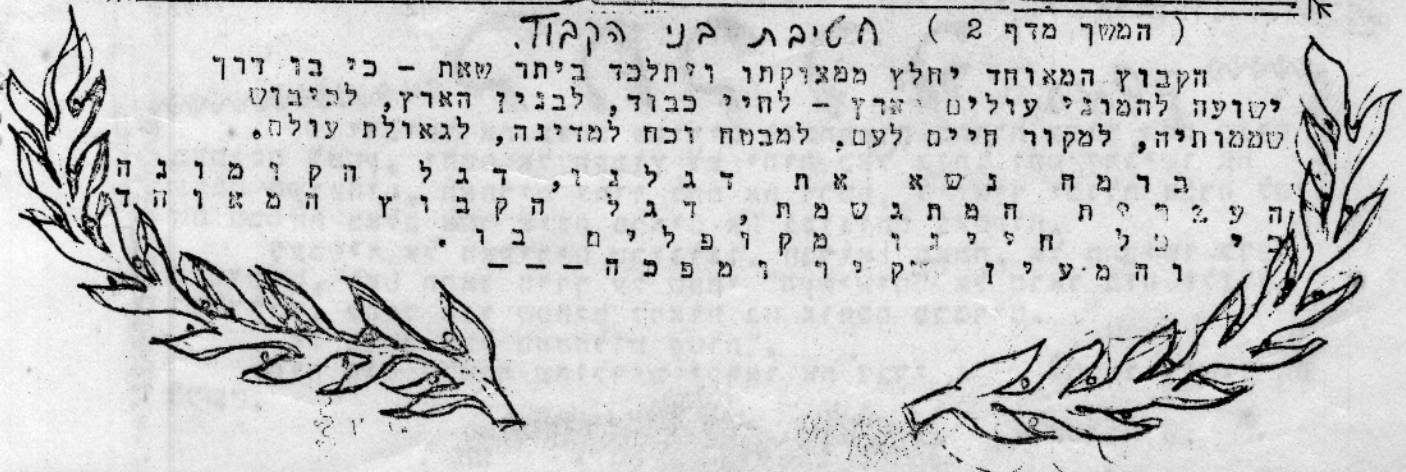 ( המשך מדף 2 ) חטיבת בני הקבוץ.
הקבוץ המאוחד יחלץ ממצוקתו ויתלכד ביתר שאת - כי בו דרך
ישועה להמוני עולים וארץ - לחיי כבוד, לבנין הארץ, לכיבוש
שממותיה, למקור חיים לעם, למבטח וכח למדינה, לגאולת עולם.
ברמה נשא את דגלנו, דגל הקומונה
העברית המתגשמת, דגל הקבוץ המאוחד
כי כל חיינו מקופלים בו.
והמעין יקיר ומפכה - - -